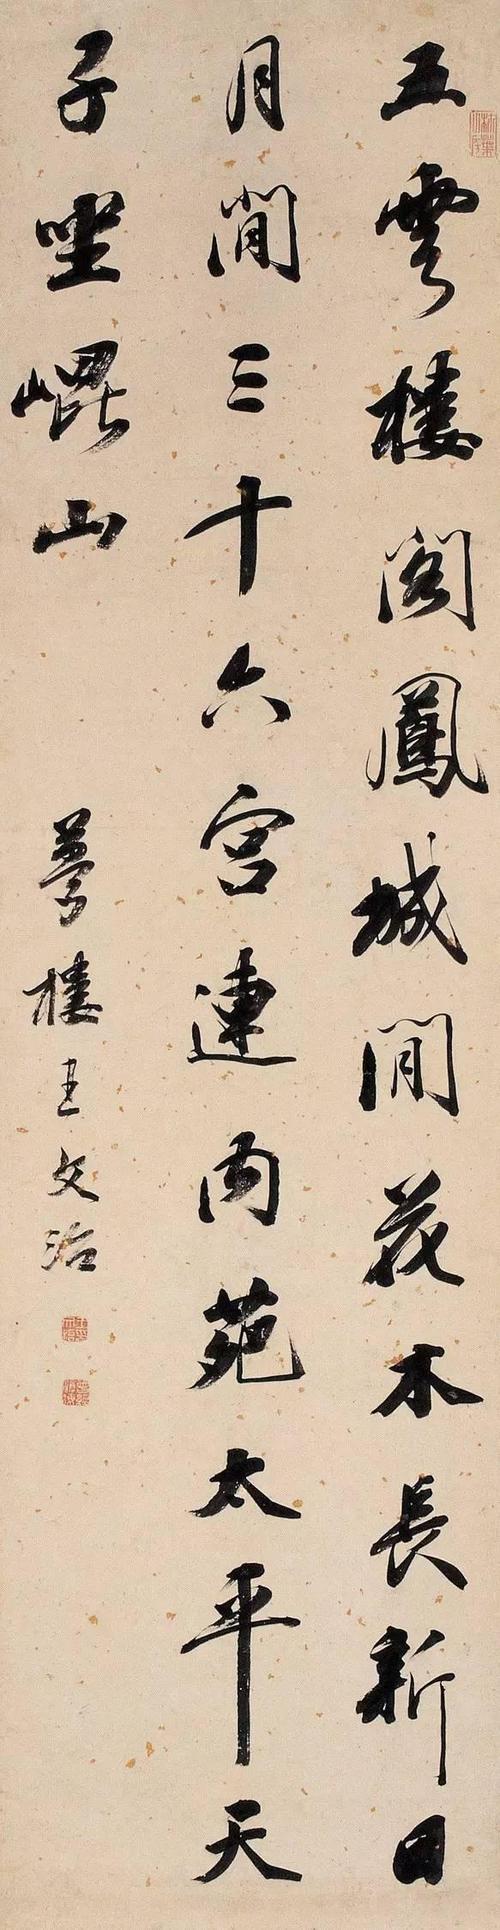 五雲樓閣鳳城間花木長新日
月閒三十六宮連內苑太平天
子坐崐山
夢樓王文治